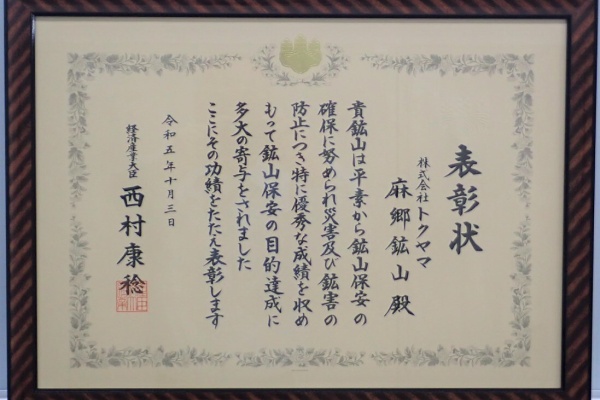 表彰状
株式会社トクヤマ
麻郷鉱山殿
貴鉱山は平素から鉱山保安の
確保に努められ災害及び鉱害の
防止につき特に優秀な成績を収め
もって鉱山保安の目的達成に
多大の寄与をされました
ここにその功績をたたえ表彰します
令和五年十月三日
経済産業大臣
西村康稔